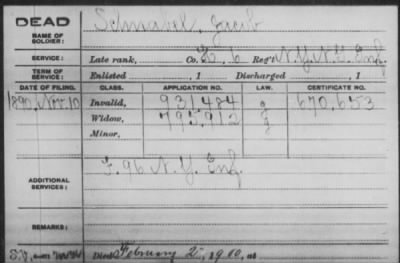 DEAD
NAME OF SOLDIER:
Schnabel, Jacob
SERVICE:
Late rank, Co. E, 6 Reg't N.Y. N.G. Inf.
TERM OF SERVICE:
Enlisted , 1 Discharged , 1
DATE OF FILING. CLASS. APPLICATION NO. LAW. CERTIFICATE NO.
1890, Nov. 10 Invalid, 931484 g 670,653
Widow, 795,912 g
Minor,
ADDITIONAL SERVICES:
F. 96 N.Y. Inf.
REMARKS:
Died February 2, 1900, at